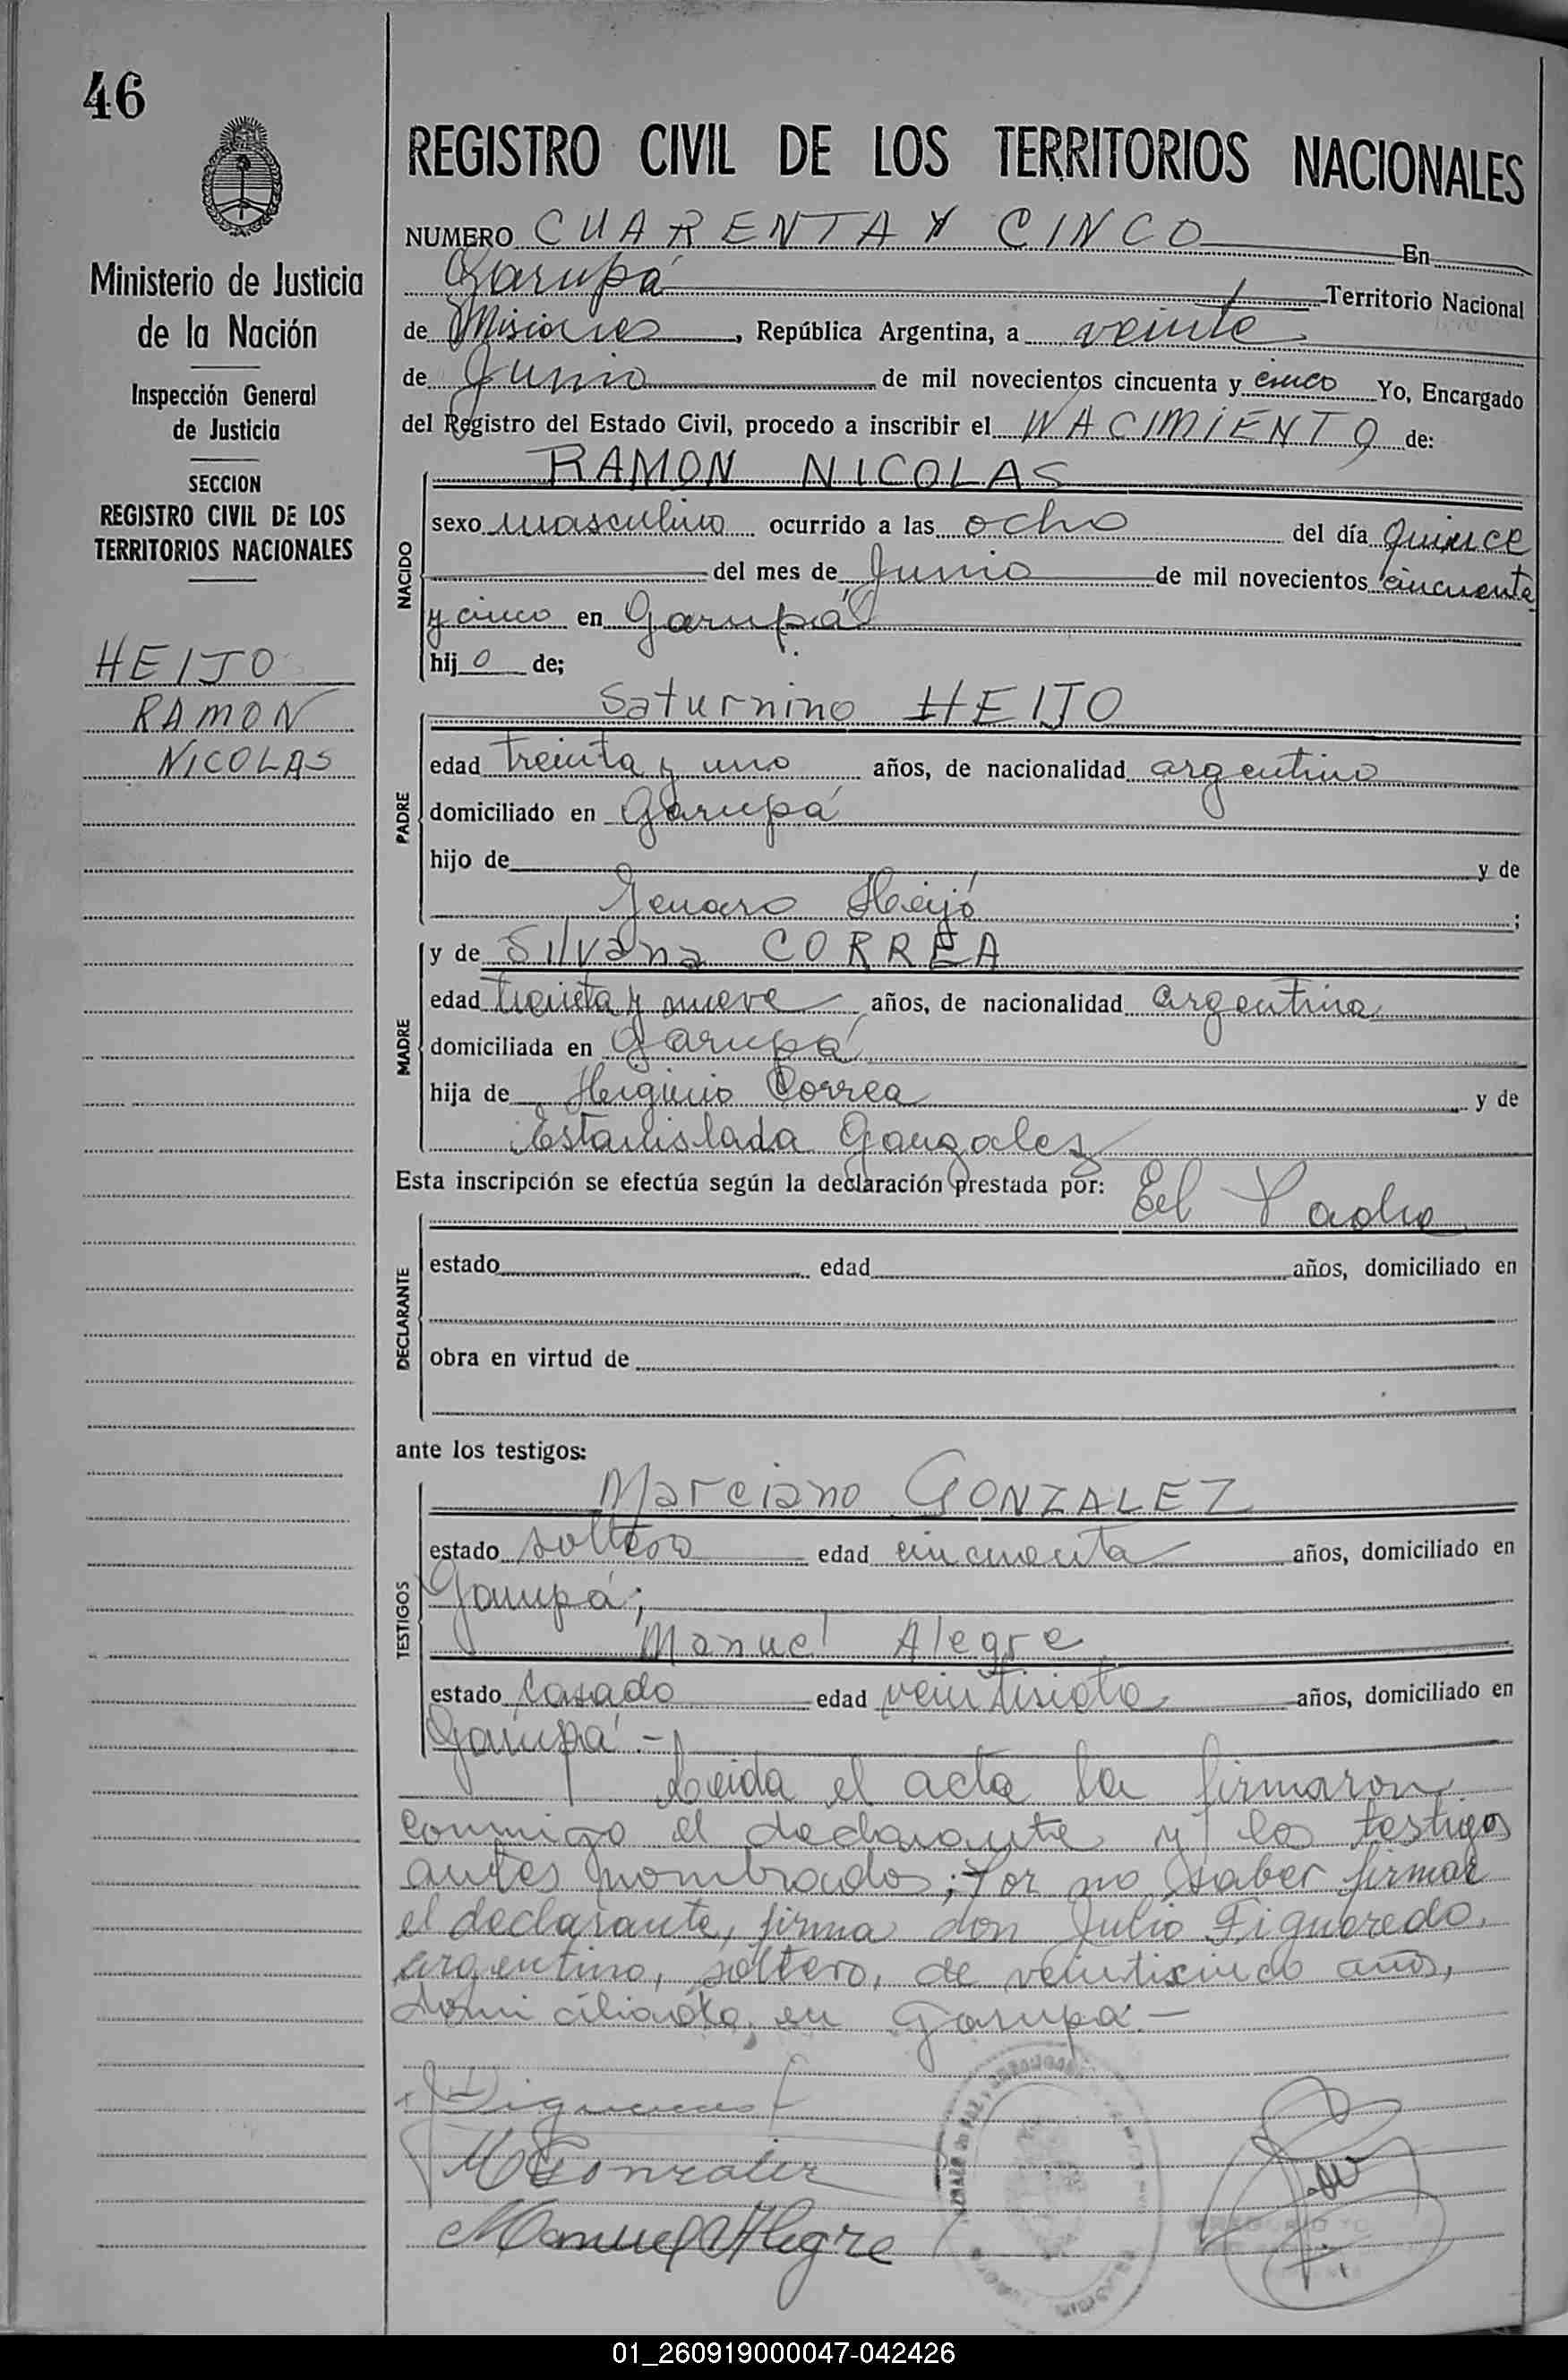 46
Ministerio de Justicia
de la Nación
Inspección General
de Justicia
SECCION
REGISTRO CIVIL DE LOS
TERRITORIOS NACIONALES
HEIJO
RAMON
NICOLAS
REGISTRO CIVIL DE LOS TERRITORIOS NACIONALES
NUMERO CUARENTA Y CINCO En
Garupá Territorio Nacional
de Misiones, República Argentina, a veinte
de Junio de mil novecientos cincuenta y cinco Yo, Encargado
del Registro del Estado Civil, procedo a inscribir el NACIMIENTO de:
NACIDO
RAMON NICOLAS
sexo masculino ocurrido a las ocho del día quince
del mes de Junio de mil novecientos cincuenta
y cinco en Garupá
hij o de;
PADRE
Saturnino HEIJO
edad treinta y uno años, de nacionalidad argentino
domiciliado en Garupá
hijo de y de
Genaro Heijó ;
MADRE
y de Silvana CORREA
edad treinta y nueve años, de nacionalidad argentina
domiciliada en Garupá
hija de Higinio Correa y de
Estanislada Gonzalez
Esta inscripción se efectúa según la declaración prestada por: El Padre
DECLARANTE
estado edad años, domiciliado en
obra en virtud de
ante los testigos:
TESTIGOS
Marciano GONZALEZ
estado soltero edad cincuenta años, domiciliado en
Garupá;
Manuel Alegre
estado casado edad veintisiete años, domiciliado en
Garupá.-
Leida el acta la firmaron
conmigo el declarante y los testigos
antes nombrados; Por no saber firmar
el declarante, firma don Julio Figueredo,
argentino, soltero, de veinticinco años,
domiciliado en Garupá.-
M Gonzalez
Manuel Alegre
01_260919000047-042426